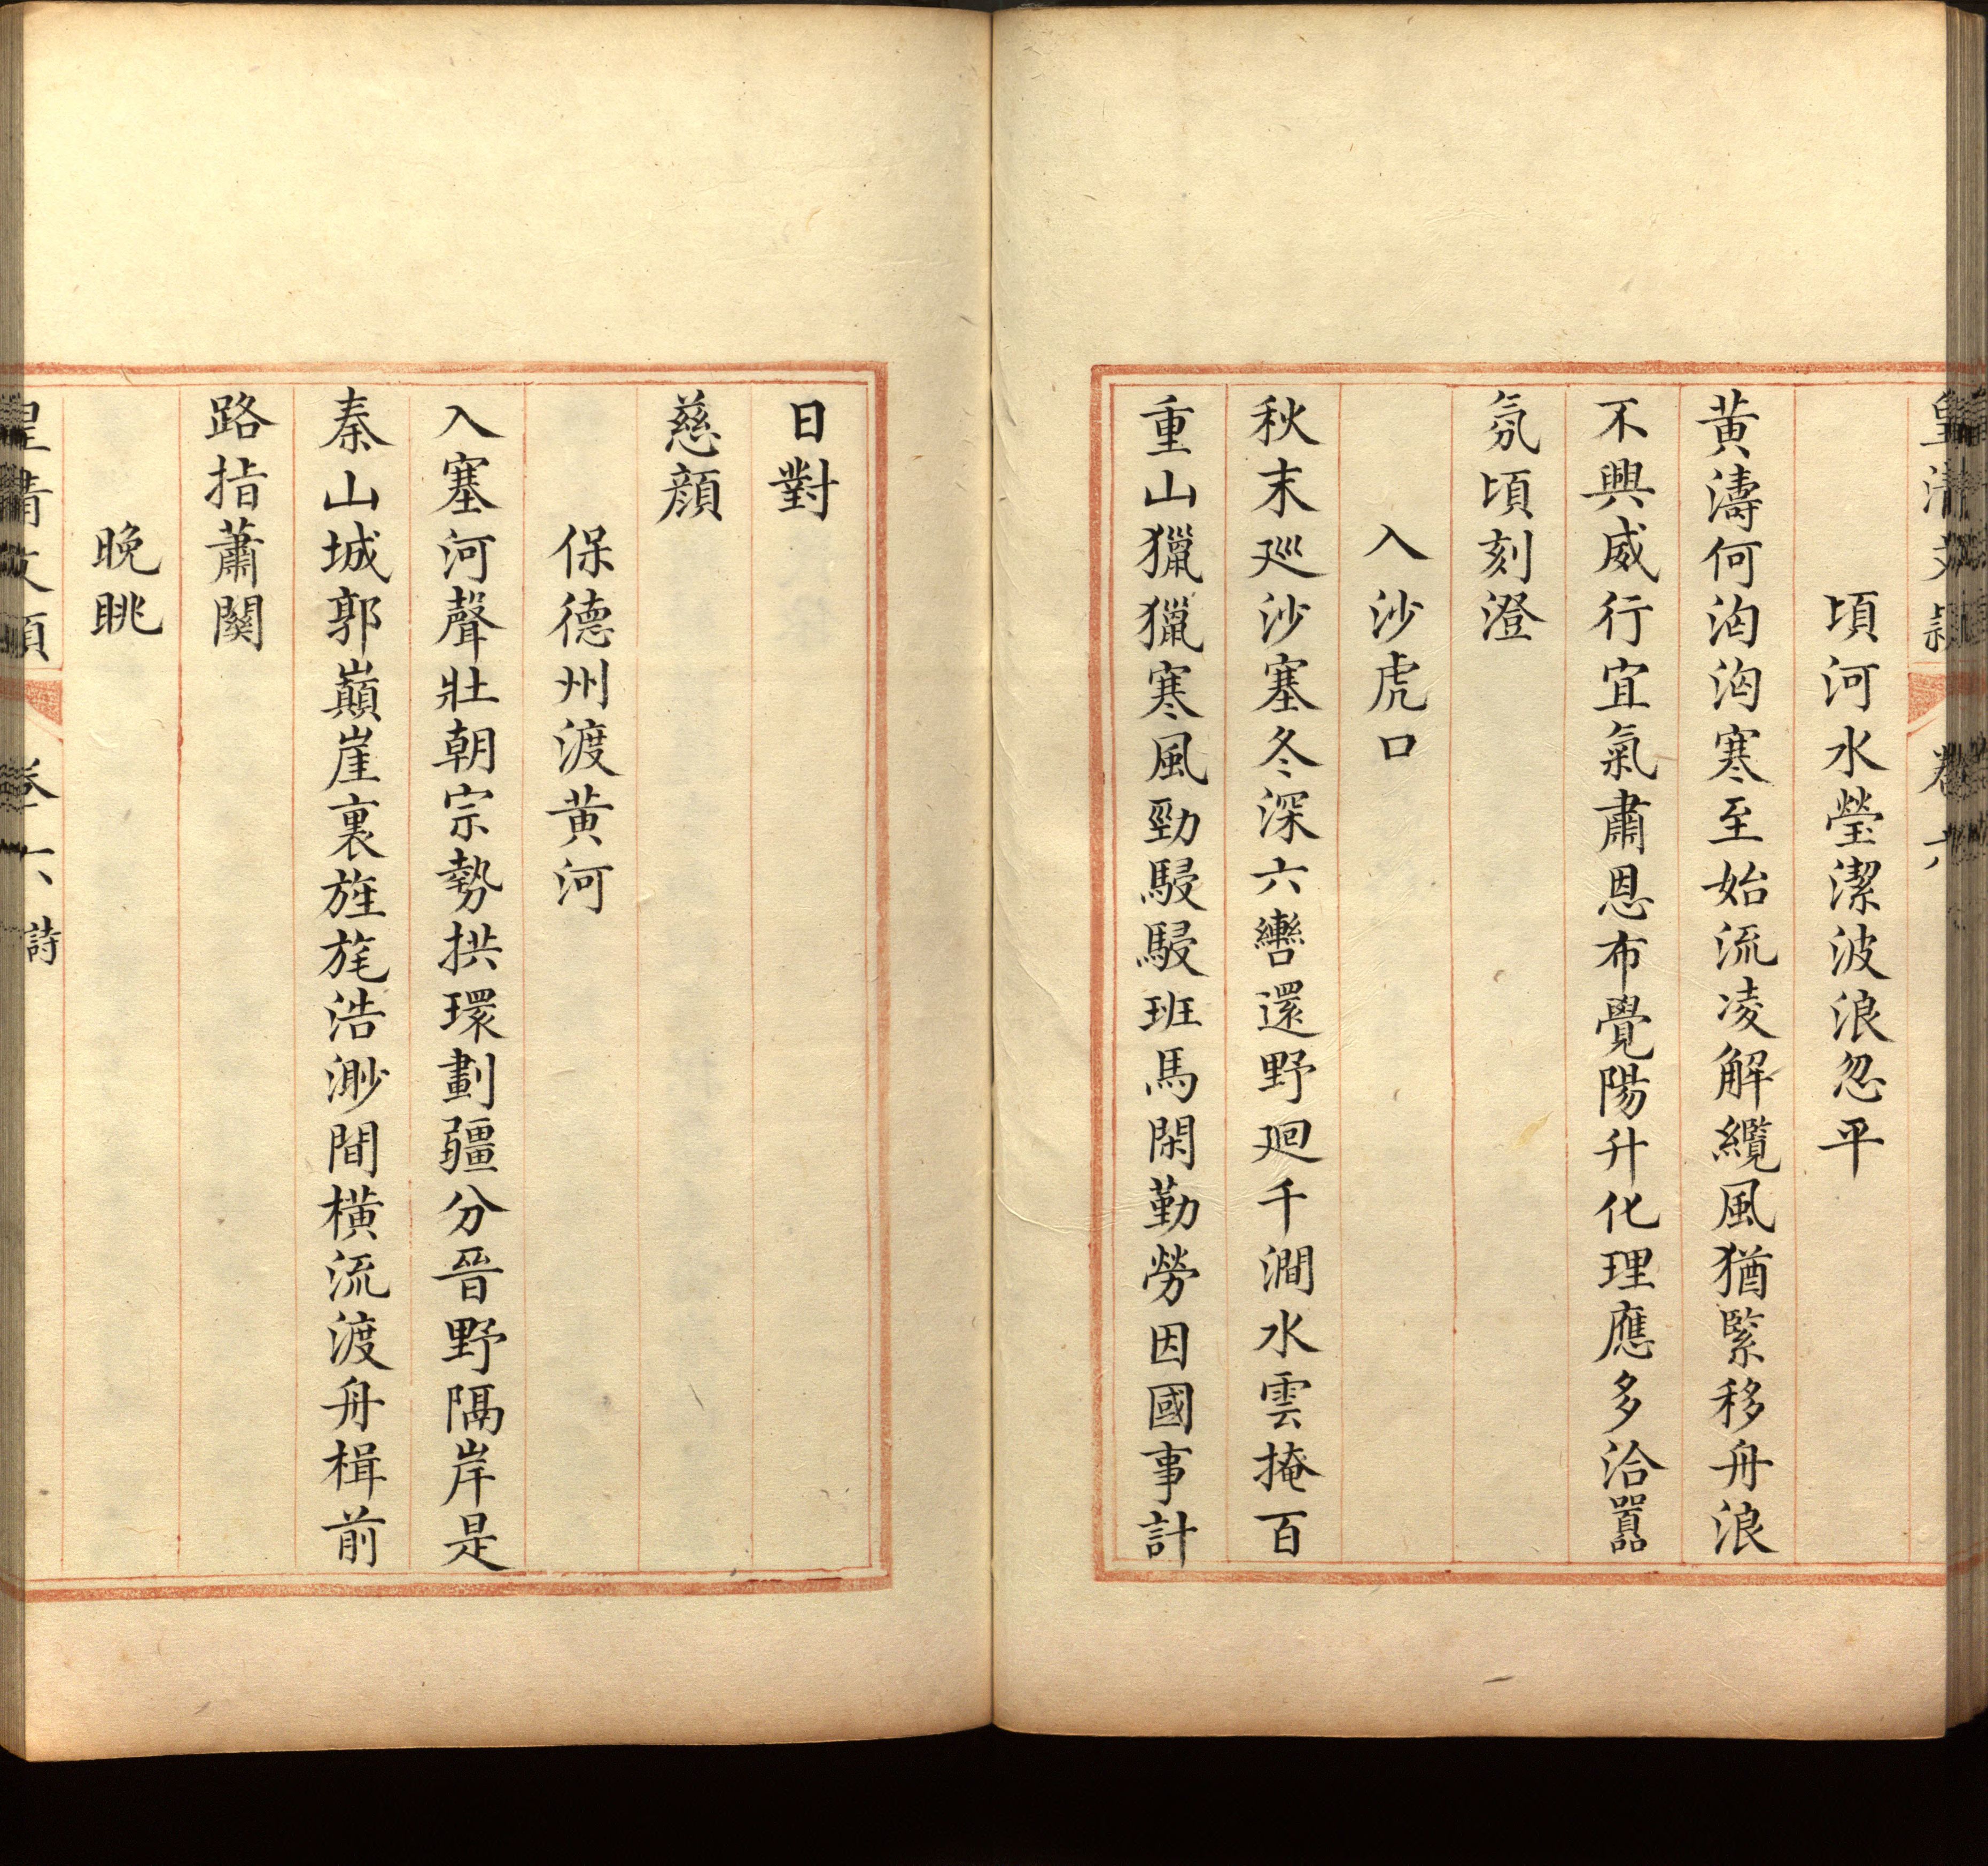 皇清文穎 卷六
頃河水瑩潔波浪忽平
黃濤何洶洶寒至始流凌解纜風猶緊移舟浪
不興威行宜氣肅恩布覺陽升化理應多洽嚚
氛頃刻澄
入沙虎口
秋末廵沙塞冬深六轡還野廻千澗水雲掩百
重山獵獵寒風勁駸駸班馬閑勤勞因國事計
日對
慈顏
保德州渡黃河
入塞河聲壯朝宗勢拱環劃疆分晉野隔岸是
秦山城郭巔崖裏旌旄浩渺間橫流渡舟楫前
路指蕭關
晚眺
皇清文穎 卷六 詩